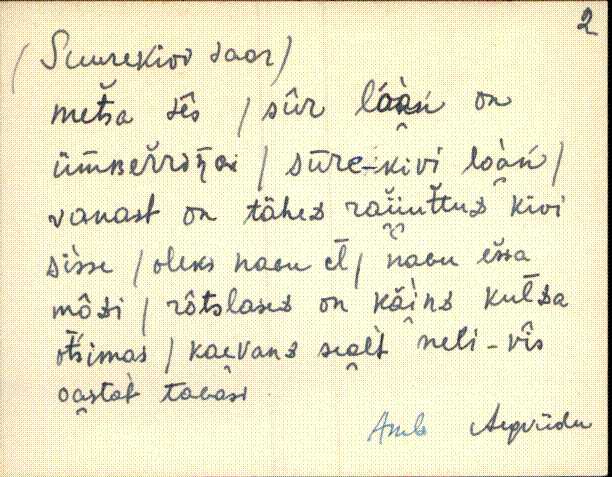 2
(Suurekivi saar)
metsa sês / sûr lòàń on
ümʙeřriŋ̄oi / sūre-kivi lòàń /
vanast on tähed raiuttud kivi
sisse / oleks naəu et / naəu essa
môdi / rôtslased on käind kulda
otsimas / kaevand sealt neli-vîs
oastat taɢàsi
Amb Aegviidu